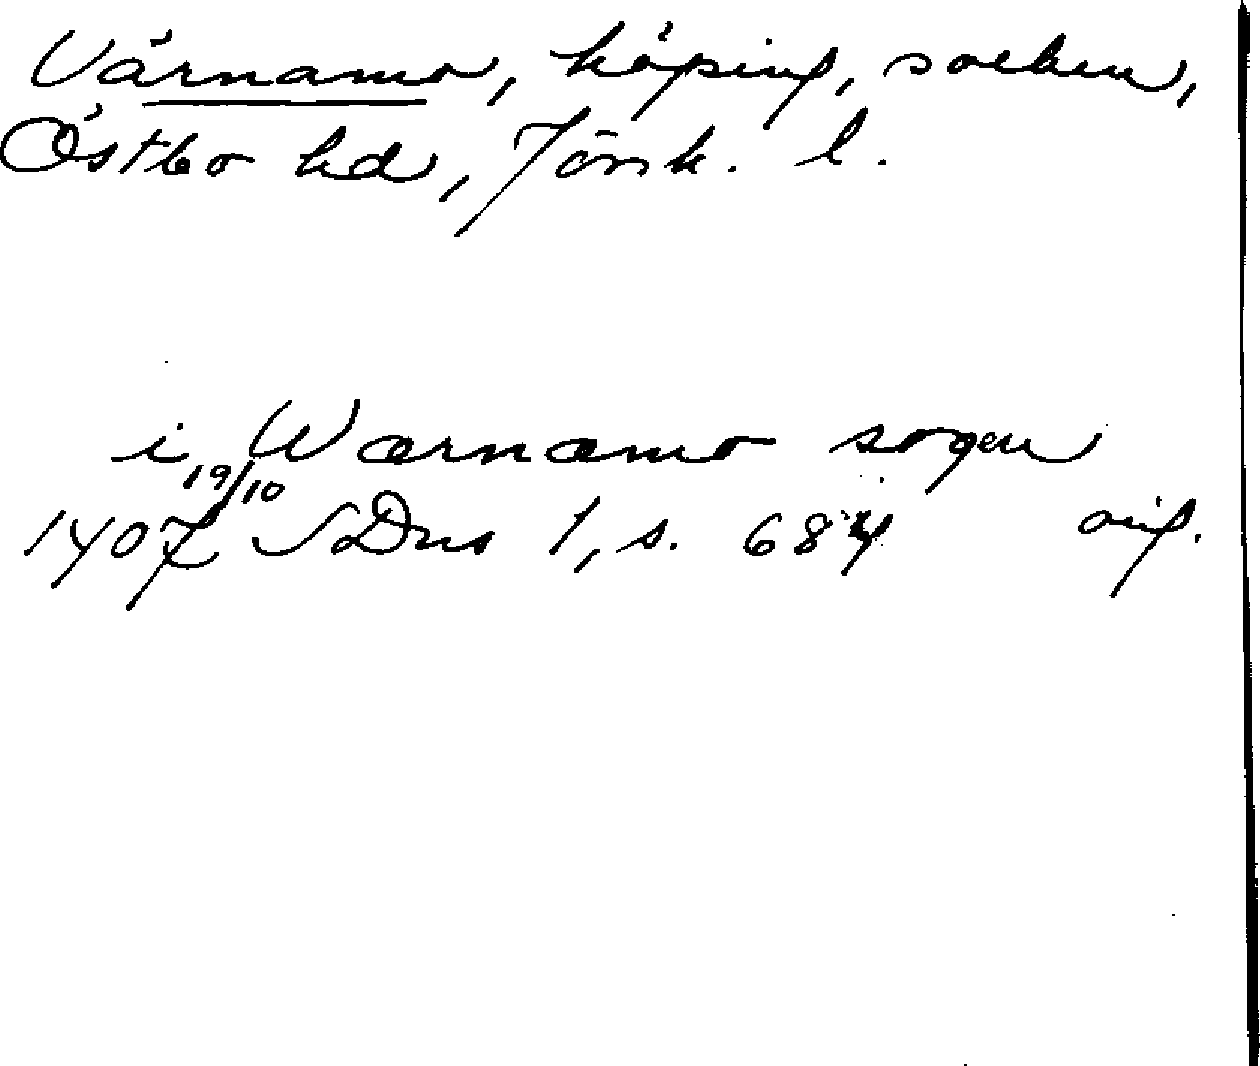 Värnamo, köping, socken,
Östbo hd, Jönk. l.
i Wærnæmo sogen
1407 19/10 SDns 1, s. 684 orig.